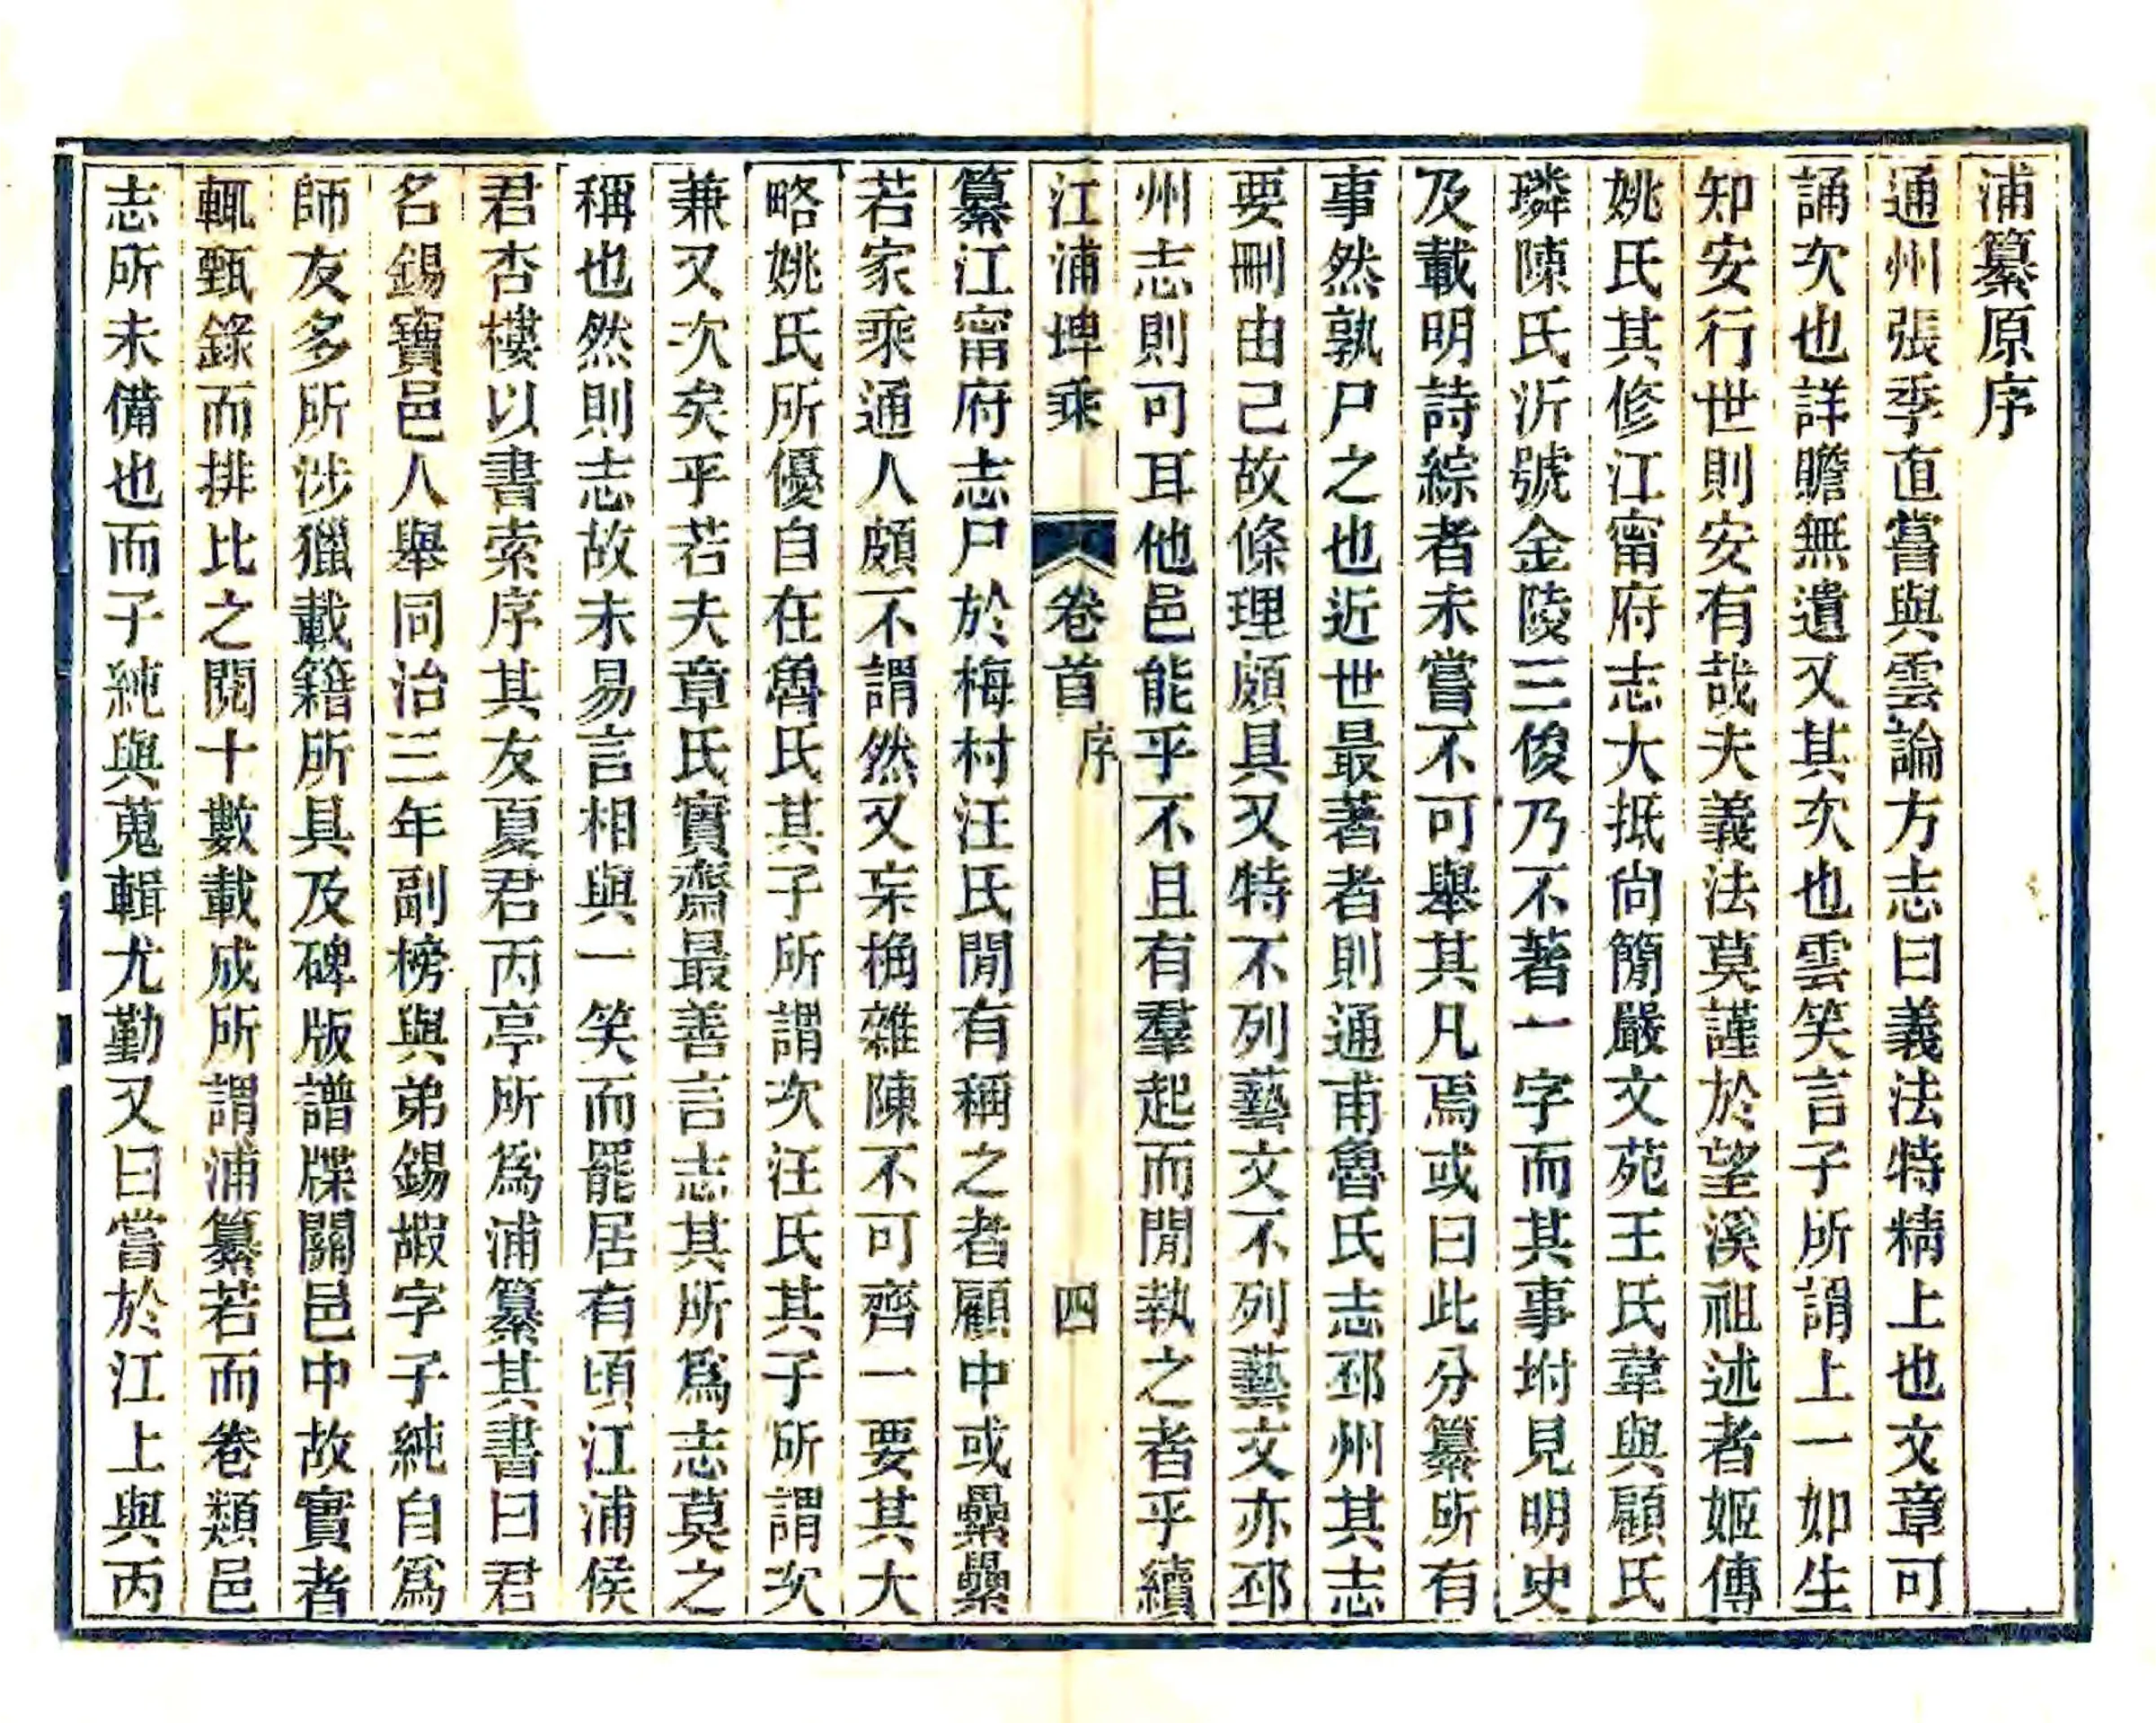 浦纂原序
通州張季直嘗與雲論方志曰義法特精上也文章可
誦次也詳贍無遺又其次也雲笑言子所謂上一如生
知安行世則安有哉夫義法莫謹於望溪祖述者姬傳
姚氏其修江甯府志大抵尙簡嚴文苑王氏韋與顧氏
璘陳氏沂號金陵三俊乃不著一字而其事坿見明史
及載明詩綜者未嘗不可舉其凡焉或曰此分纂所有
事然孰尸之也近世最著者則通甫魯氏志邳州其志
要刪由己故條理頗具又特不列藝文不列藝文亦邳
州志則可耳他邑能乎不且有羣起而閒執之者乎續
江浦埤乘 卷首 序 四
纂江甯府志尸於梅村汪氏閒有稱之者顧中或纍纍
若家乘通人頗不謂然又宋桷雜陳不可齊一要其大
略姚氏所優自在魯氏其子所謂次汪氏其子所謂次
兼又次矣乎若夫章氏實齋最善言志其所爲志莫之
稱也然則志故未易言相與一笑而罷居有頃江浦侯
君杏樓以書索序其友夏君丙亭所爲浦纂其書曰君
名錫寶邑人舉同治三年副榜與弟錫嘏字子純自爲
師友多所涉獵載籍所具及碑版譜牒關邑中故實者
輒甄錄而排比之閱十數載成所謂浦纂若而卷類邑
志所未備也而子純與蒐輯尤勤又曰嘗於江上與丙